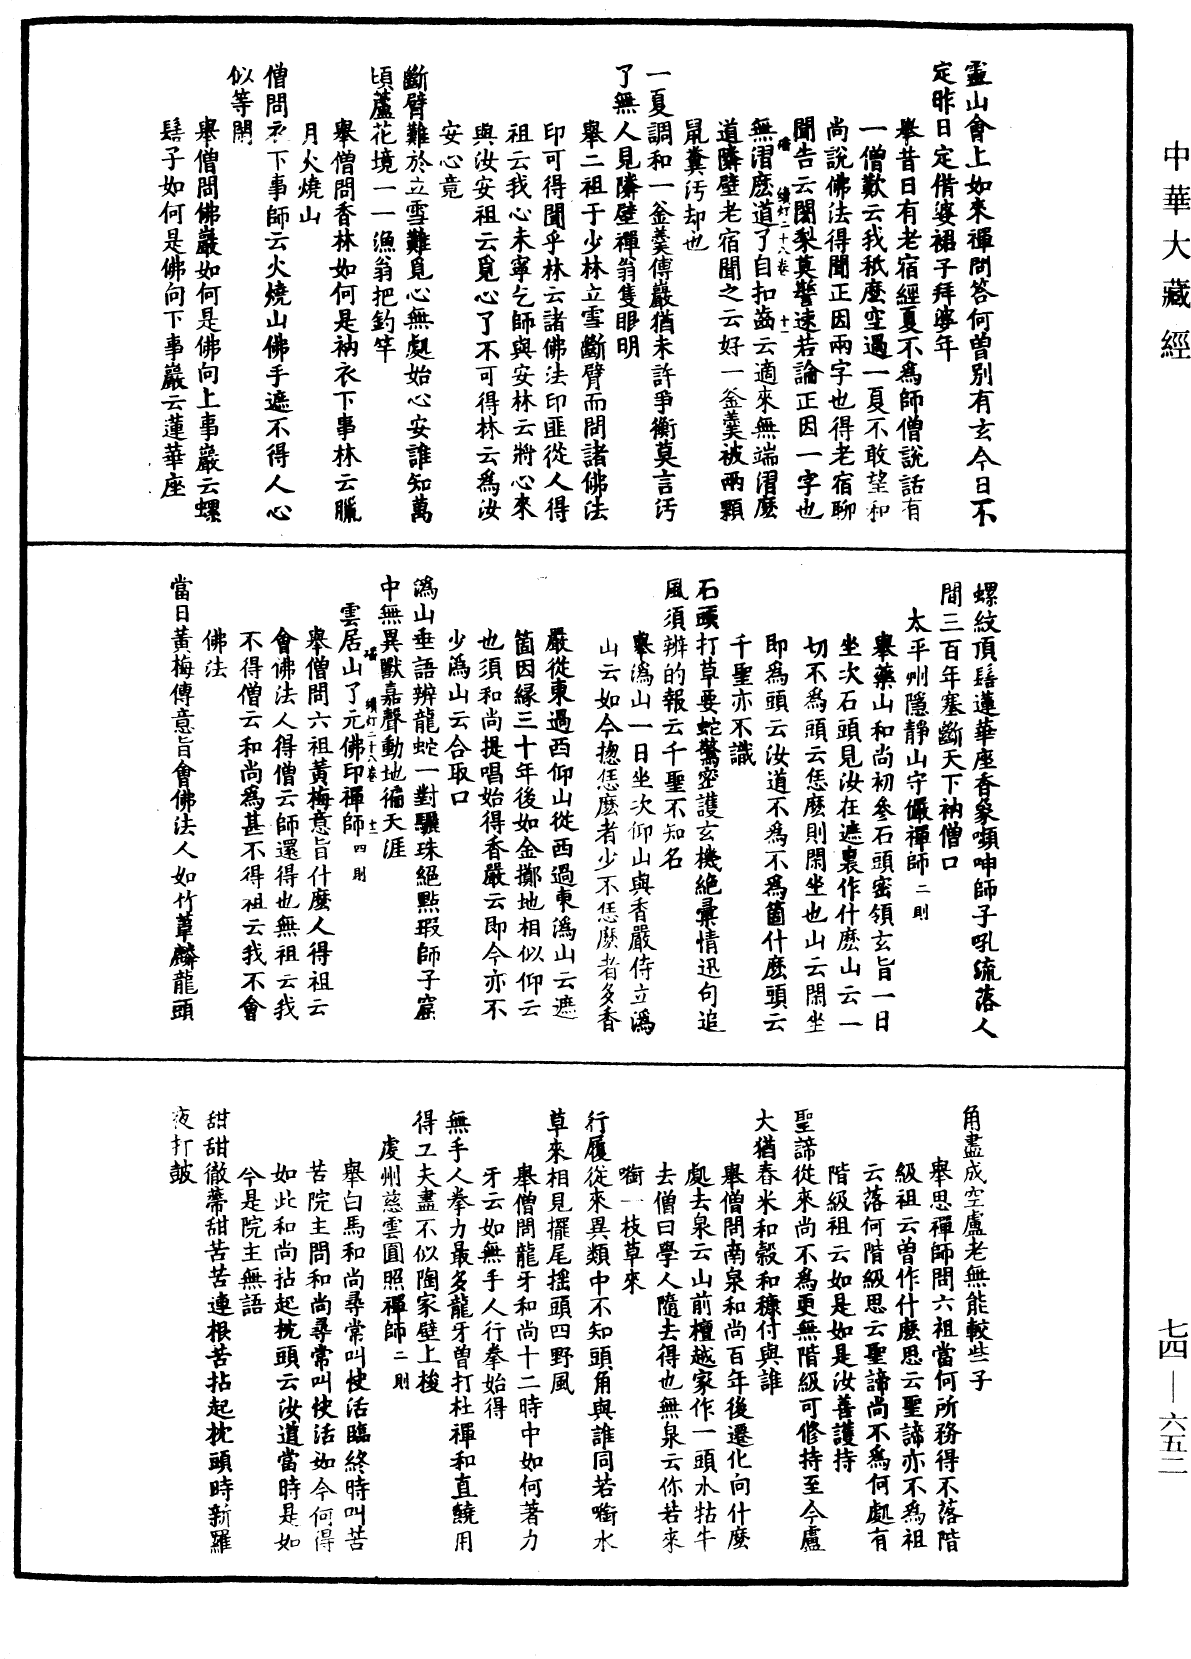 中華大藏經
靈山會上如來禪問答何曽别有玄今日不
定昨日定借婆裙子拜婆年
舉昔日有老宿經夏不爲師僧說話有
一僧歎云我秖麽空過一夏不敢望和
尚說佛法得聞正因兩字也得老宿聊
聞告云闍梨莫𧬊速若論正因一字也
續灯二十八卷 十一
無漝麽道了自扣齒云適來無端漝麽
道隣壁老宿聞之云好一釜羹被兩顆
鼠糞汚却也
一夏調和一釜羹傅巖猶未許爭衡莫言汚
了無人見隣壁禪翁隻眼明
舉二祖于少林立雪斷臂而問諸佛法
印可得聞乎林云諸佛法印匪從人得
祖云我心未寧乞師與安林云將心來
與汝安祖云覓心了不可得林云爲汝
安心竟
斷臂難於立雪難覓心無處始心安誰知萬
頃蘆花境一一漁翁把釣竿
舉僧問香林如何是衲衣下事林云臘
月火燒山
僧問衣下事師云火燒山佛手遮不得人心
似等閑
舉僧問佛巖如何是佛向上事巖云螺
髻子如何是佛向下事巖云蓮華座
螺紋頂髻蓮華座香象嚬呻師子吼流落人
間三百年塞斷天下衲僧口
太平州隱靜山守儼禪師二則
舉藥山和尚初參石頭密領玄旨一日
坐次石頭見汝在遮裏作什麽山云一
切不爲頭云恁麽則閑坐也山云閑坐
即爲頭云汝道不爲不爲箇什麽頭云
千聖亦不識
石頭打草要蛇驚密護玄機絕彙情迅句追
風須辨的報云千聖不知名
舉溈山一日坐次仰山與香嚴侍立溈
山云如今揔恁麽者少不恁麽者多香
嚴從東過西仰山從西過東溈山云遮
箇因緣三十年後如金擲地相似仰云
也須和尚提唱始得香嚴云即今亦不
少溈山云合取口
溈山垂語辨龍蛇一對驪珠絕點瑕師子窟
中無異獸嘉聲動地徧天涯
續灯二十八卷 十二
雲居山了元佛印禪師四則
舉僧問六祖黃梅意旨什麽人得祖云
會佛法人得僧云師還得也無祖云我
不得僧云和尚爲甚不得祖云我不會
佛法
當日黃梅傳意旨會佛法人如竹葦麟龍頭
角盡成空盧老無能較些子
舉思禪師問六祖當何所務得不落階
級祖云曽作什麽思云聖諦亦不爲祖
云落何階級思云聖諦尚不爲何處有
階級祖云如是如是汝善護持
聖諦從來尚不爲更無階級可修持至今盧
大猶舂米和穀和糠付與誰
舉僧問南泉和尚百年後遷化向什麽
處去泉云山前檀越家作一頭水牯牛
去僧曰學人隨去得也無泉云你若來
㗸一枝草來
行履從來異類中不知頭角與誰同若㗸水
草來相見擺尾搖頭四野風
舉僧問龍牙和尚十二時中如何著力
牙云如無手人行拳始得
無手人拳力最多龍牙曽打杜禪和直饒用
得工夫盡不似陶家壁上梭
處州慈雲圓照禪師二則
舉白馬和尚尋常叫快活臨終時叫苦
苦院主問和尚尋常叫快活如今何得
如此和尚拈起枕頭云汝道當時是如
今是院主無語
甜甜徹蒂甜苦苦連根苦拈起枕頭時新羅
夜打皷
七四—六五二